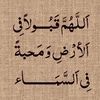 اَللّٰهُمَّ قَبُولاً فِي
اَلْأَرْضِ وَمَحَبَةً
فِي اَلسَّمَاء